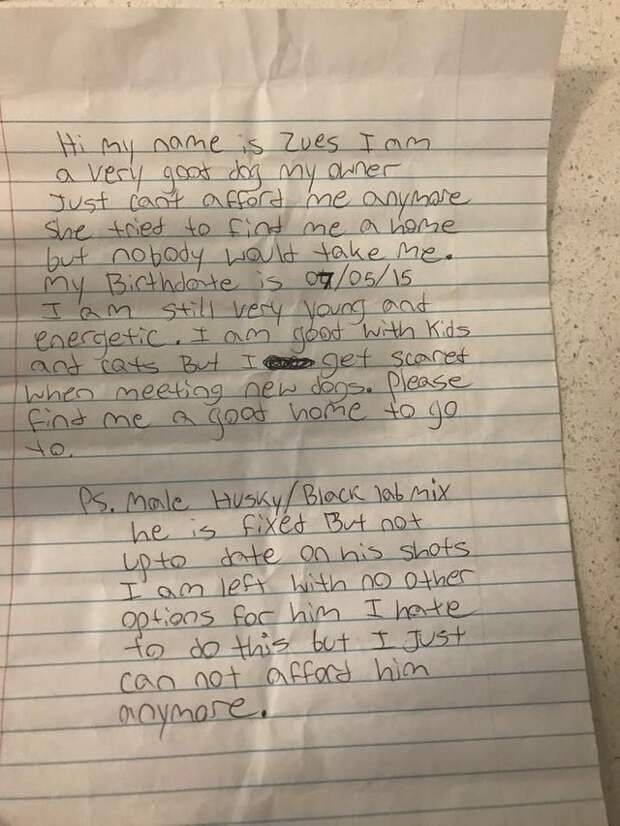 Hi my name is Zues I am
a very good dog my owner
Just can't afford me anymore
she tried to find me a home
but nobody would take me.
my Birthdate is 07/05/15
I am still very young and
energetic. I am good with Kids
and cats But I get scared
when meeting new dogs. Please
find me a good home to go
to.
Ps. Male Husky/Black lab mix
he is fixed But not
up to date on his shots
I am left with no other
options for him I hate
to do this but I Just
can not afford him
anymore.